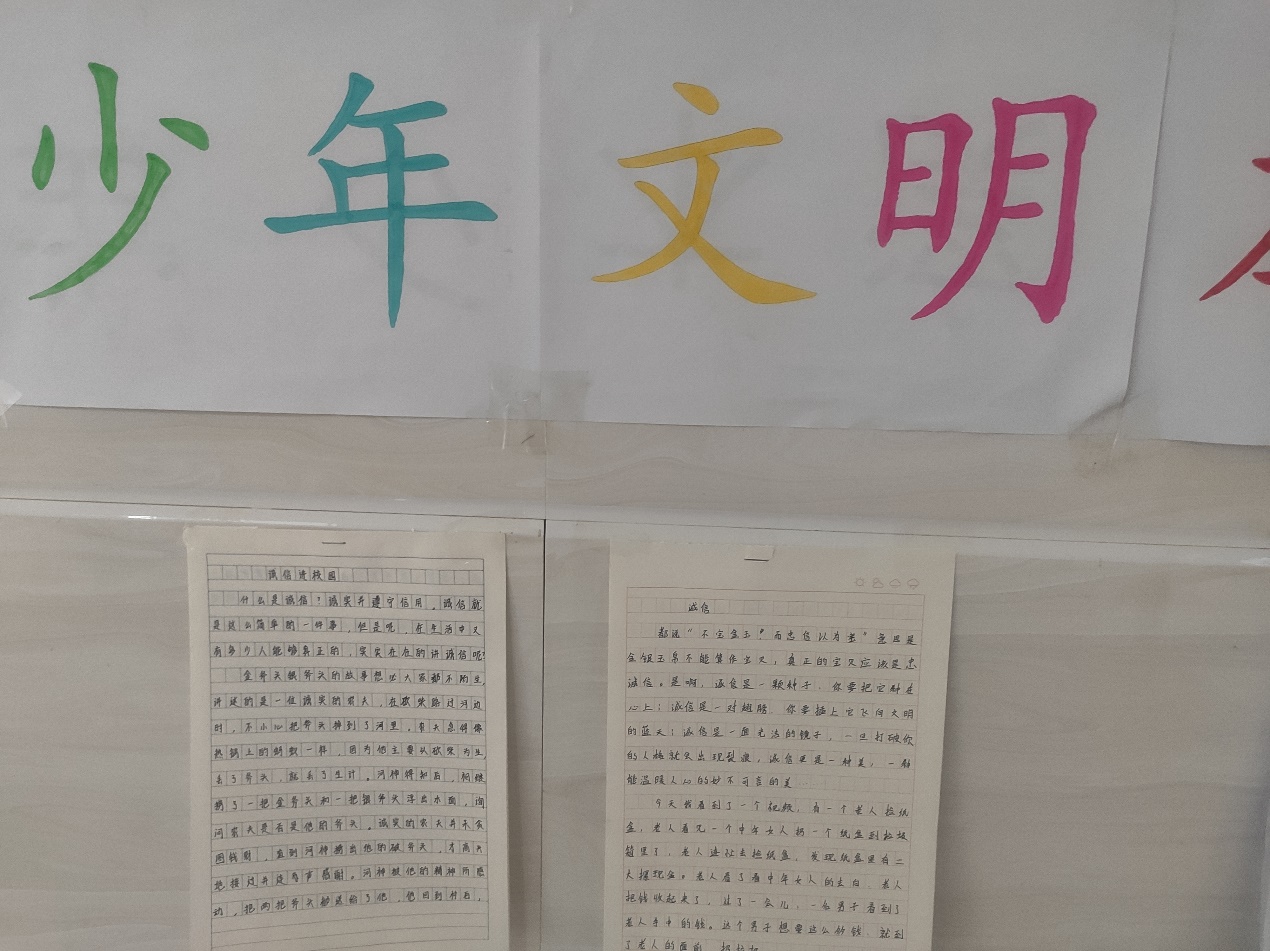 少年文明
诚信进校园
什么是诚信？诚实并遵守信用。诚信就
是这么简单的一件事，但是呢，在生活中又
有多少人能够真正的，实实在在的讲诚信呢？
金斧头银斧头的故事想必大家都不陌生，
讲述的是一位诚实的农夫，在砍柴路过河边
时，不小心把斧头掉到了河里。农夫急得像
热锅上的蚂蚁一样，因为他主要以砍柴为生，
丢了斧头，就丢了生计。河神得知后，相继
拐了一把金斧头和一把银斧头浮出水面，询
问农夫是否是他的斧头。诚实的农夫并不贪
图钱财，直到河神拿出他的破斧头，才高兴
地接过并连声感谢。河神被他的精神所感
动，把两把斧头都送给了他，他回到村后，
诚信
都说“不宝金玉，而忠信以为宝”意思是
金银玉帛不能算作宝义，真正的宝义应该是忠
诚信。是啊，诚信是一颗种子，你要把它种在
心上；诚信是一对翅膀，你要插上它飞向文明
的蓝天；诚信是一面光洁的镜子，一旦打破你
的人格就会出现裂痕，诚信更是一种美，一种
能温暖人心的妙不可言的美
今天我看到了一个视频，有一个老人捡纸
盒，老人看见一个中年女人扔一个纸盒到垃圾
箱里了，老人连忙去捡纸盒，发现纸盒里有二
大摞现金。老人看了看中年女人的去向，老人
把钱收起来了，过了一会儿，一名男子看到了
老人手中的钱。这个男子想要这么的钱，就到
了老人的面前